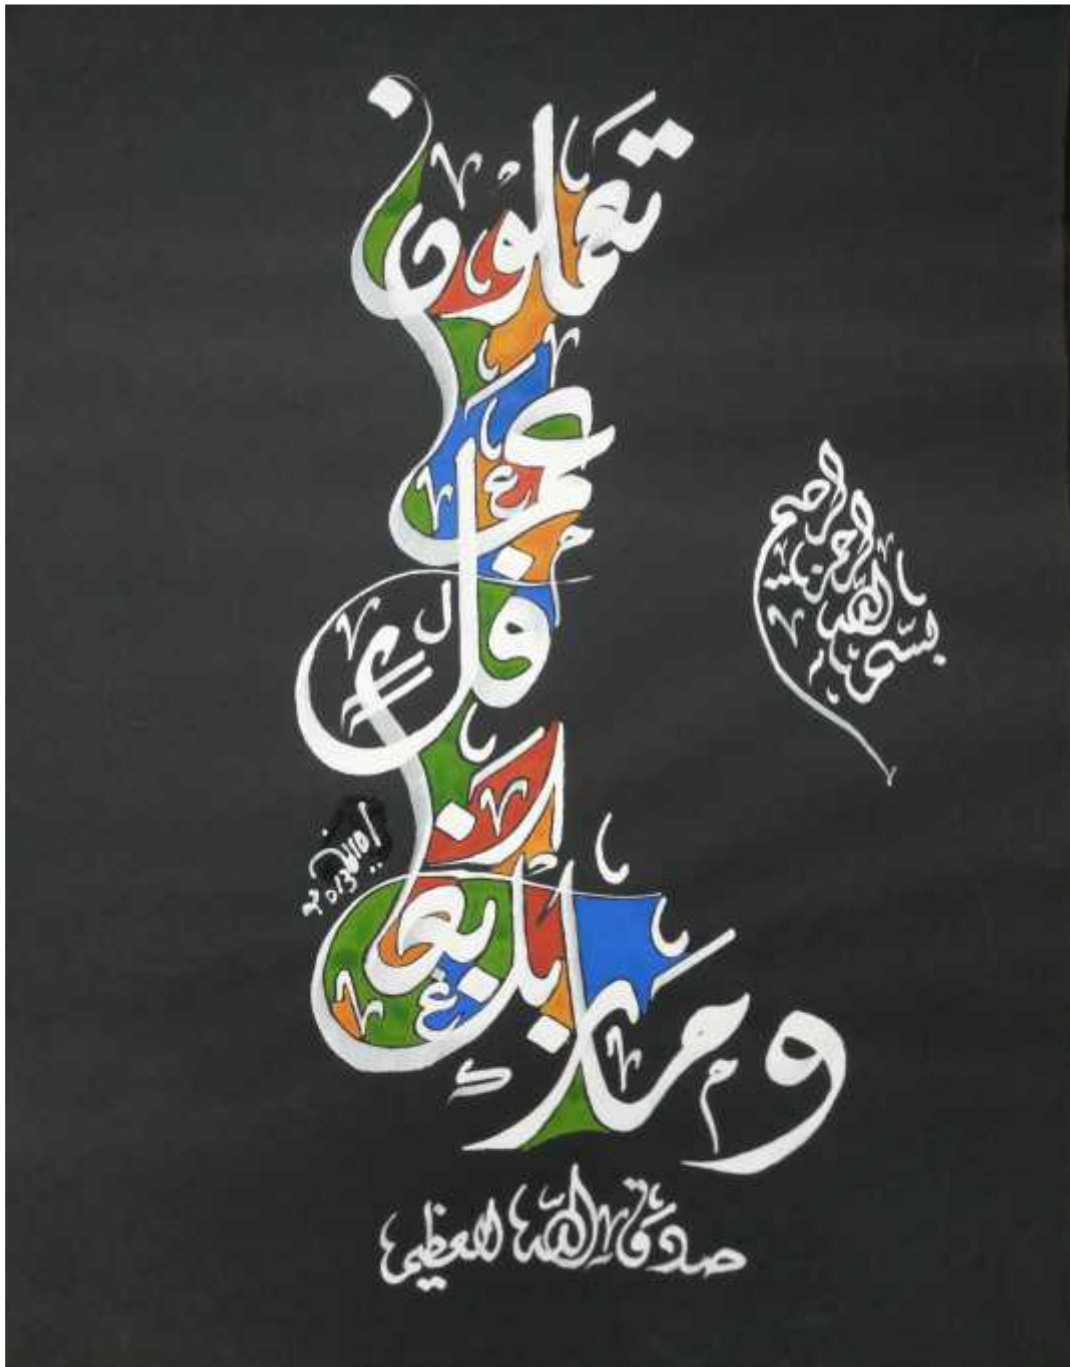 بسم الله الرحمن الرحيم
وما ربك بغافل عما تعملون
2013
صدق الله العظيم